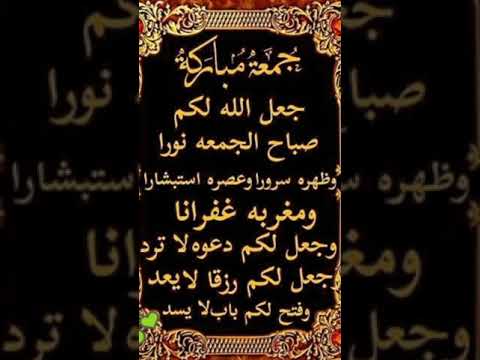 جمعة مباركة
جعل الله لكم
صباح الجمعه نورا
وظهره سرورا وعصره استبشارا
ومغربه غفرانا
وجعل لكم دعوه لا ترد
وجعل لكم رزقا لايعد
وفتح لكم باب لا يسد